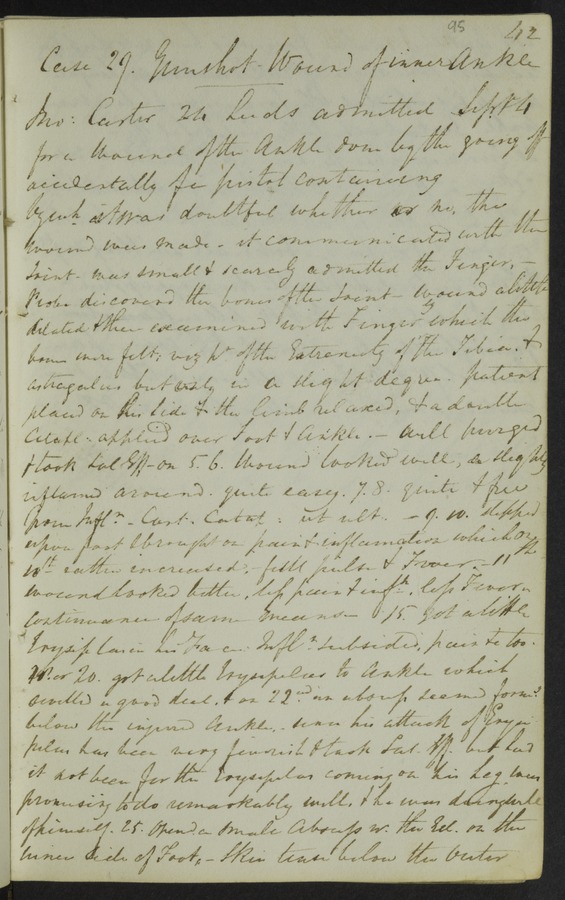 95 42
Case 29. Gunshot Wound of inner Ankle
Jno: Carter 24 Leeds admitted Sept 4
for a Wound of the Ankle done by the going off
accidentally of a pistol containing
it was doubtful whether or no, the
wound was made - it communicated with the
Joint - was small & scarcely admitted the Finger, -
Probe discovered the bones of the Joint - Wound a little
dilated & then examined with Finger by which the
bones were felt; viz pt of the Extremity of the Tibia. &
astragalus but only in a slight degree. patient
placed on his side & the limb relaxed, & a double
Catapl. applied over Foot & Ankle. - Well purged
& took Sal Eff - on 5. 6. Wound looked well, a slightly
inflamed around. quite easy. 7. 8. quite & free
from Infln. - Cont. Catap: ut ult. - 9. 10. slipped
upon part & brought on pain & inflammation which on
10th rather increased. - full pulse & Fever. - 11th
wound looked better, less pain & infln, less Fever.
continuance of same means - 15 got a little
Erysipelas in his Face. Infln subsided, pain &c too.
or 20. got a little Erysipelas to Ankle which
swelled a good deal. & on 22nd an abscess seemed formd
below the injured Ankle. - since his attack of Erysi
pelas has been very feverish & took Sal. Eff. but had
it not been for the Erysipelas coming on his leg was
promising to do remarkably well. & he was
of himself. 25. Opend a small Abscess w. the on the
inner Side of Foot. - Skin tense below the Outer